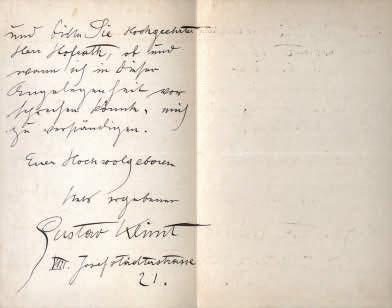 und bitte Sie hochgeehrter
Herr Hofrath, ob und
wann ich in dieser
Angelegenheit vor
sprechen könnte, mich
zu verständigen.
Euer Hochwolgeboren
stets ergebener
Gustav Klimt
VIII. Josefstädterstrasse
21.